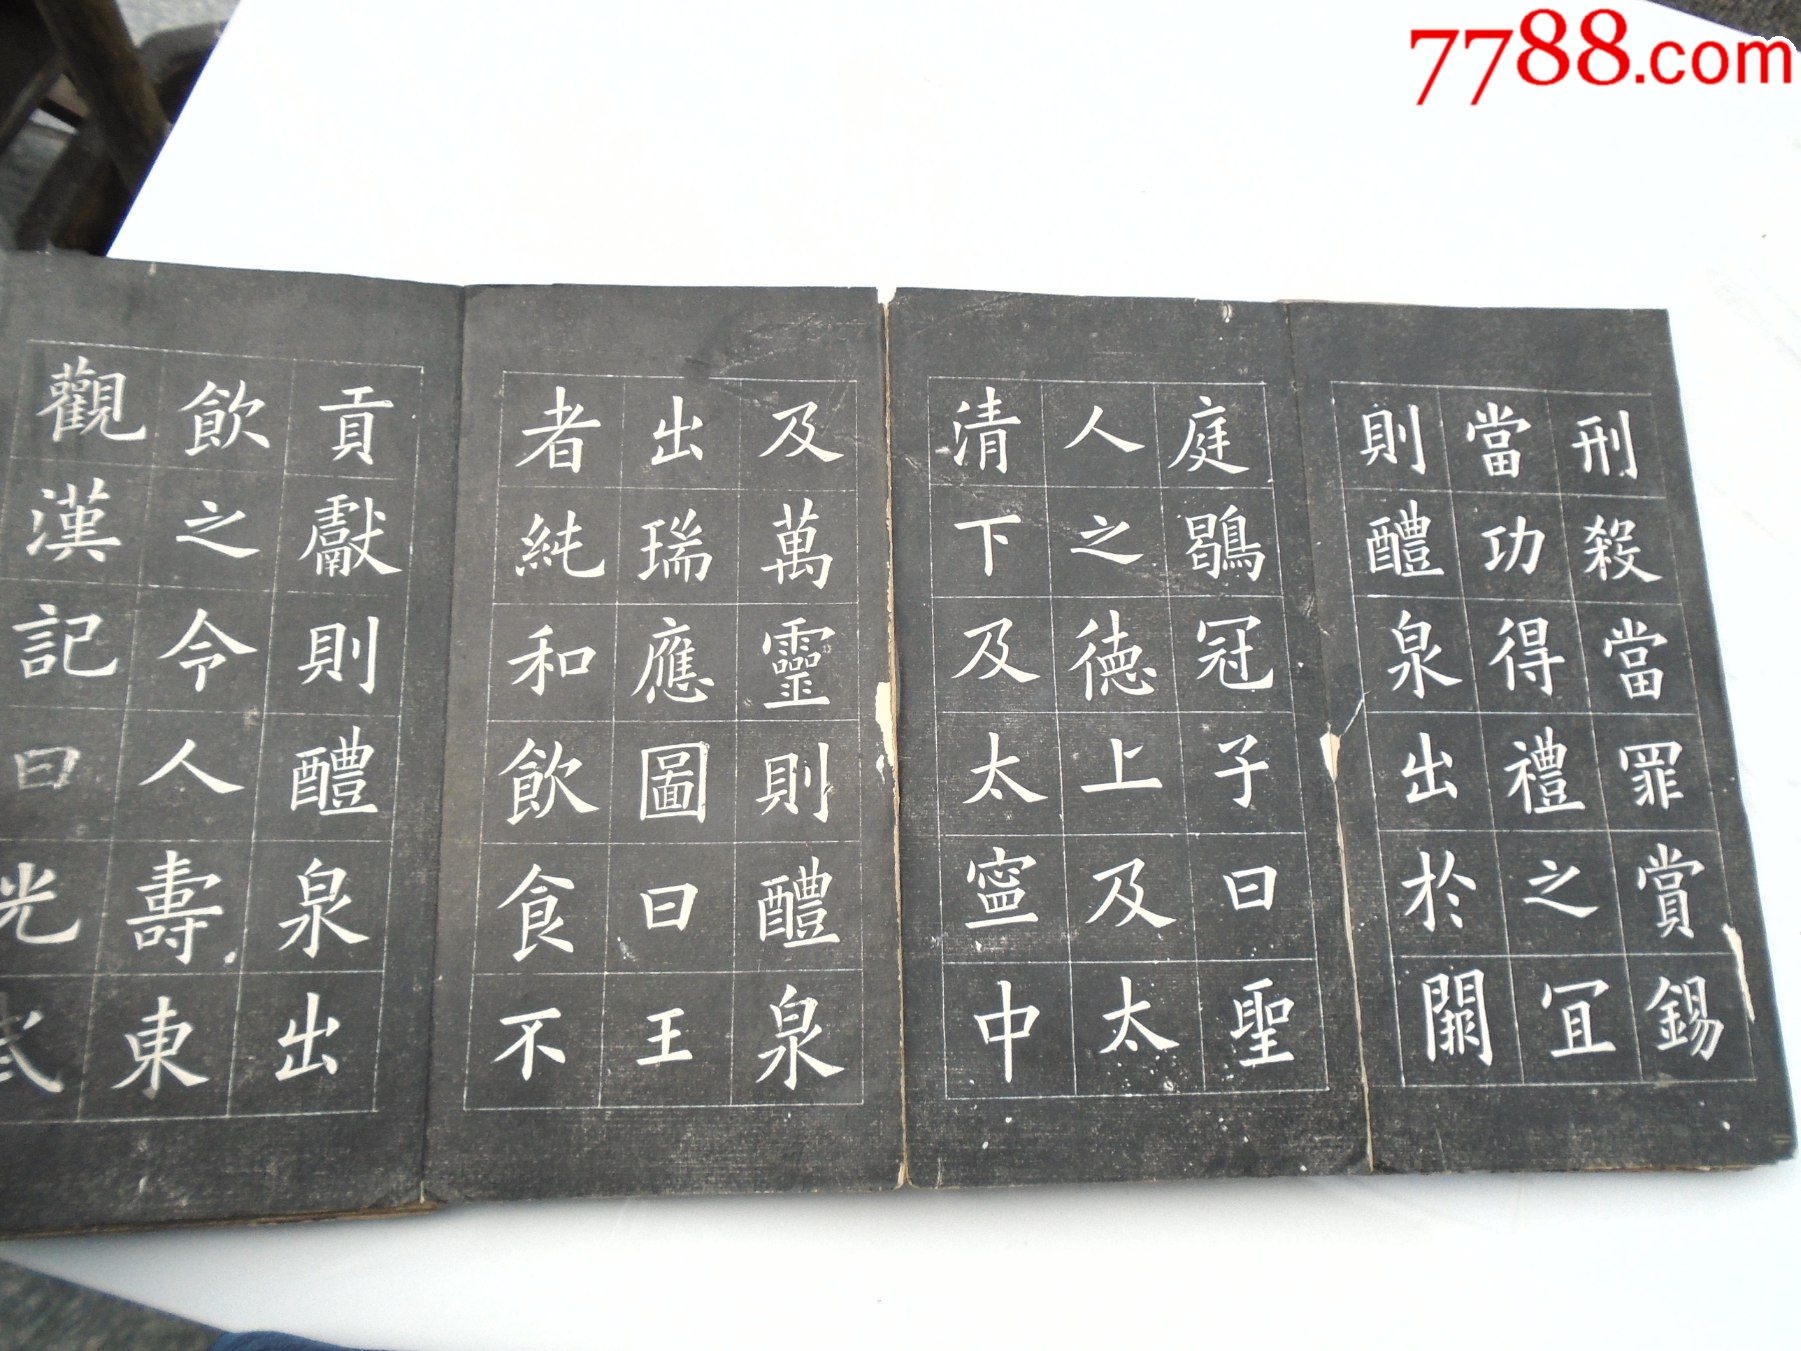 7788.com
刑殺當罪賞錫
當功得禮之宜
則醴泉出於闕
庭鶡冠子曰聖
人之德上及太
清下及太寧中
及萬靈則醴泉
出瑞應圖曰王
者純和飲食不
貢獻則醴泉出
飲之令人壽東
觀漢記曰光武